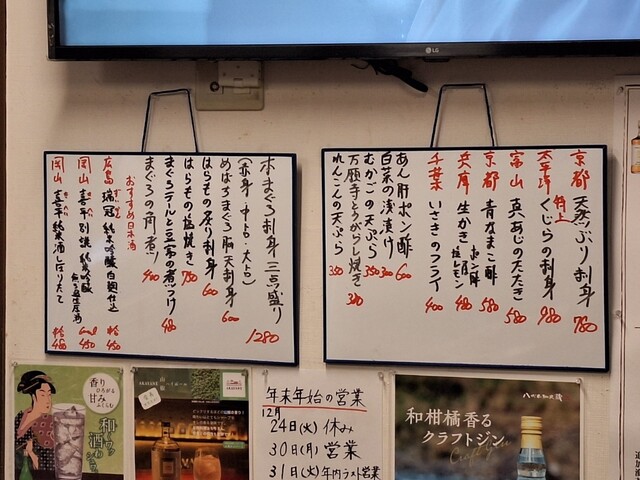 LG
京都 天然ぶり刺身 780
太平洋 特上 くじらの刺身 980
富山 真あじのたたき 580
京都 青なまこ酢 580
兵庫 生かき ポン酢 塩レモン 480
千葉 いさきのフライ 400
あん肝ポン酢 600
白菜の浅漬け 300
むかごの天ぷら 350
万願寺とうがらし焼き
れんこんの天ぷら 350
本まぐろ刺身三点盛り
(赤身・中トロ・大トロ) 1280
めばちまぐろ脳天刺身 600
はらもの炙り刺身 600
はらもの塩焼き 750
まぐろテールと豆腐の煮つけ 480
まぐろの角煮 400
おすすめ日本酒
広島 瑞冠 純米吟醸 450
岡山 喜平 別誂 純米吟醸 450
岡山 喜平 純米酒しぼりたて 480
香り
ひろがる
甘み
ふくらむ
和ハウ
酒
AKASHI
年末年始の営業
12月
24日(火) 休み
30日(月) 営業
31日(火) 年内ラスト営業
和柑橘香る
クラフトジン